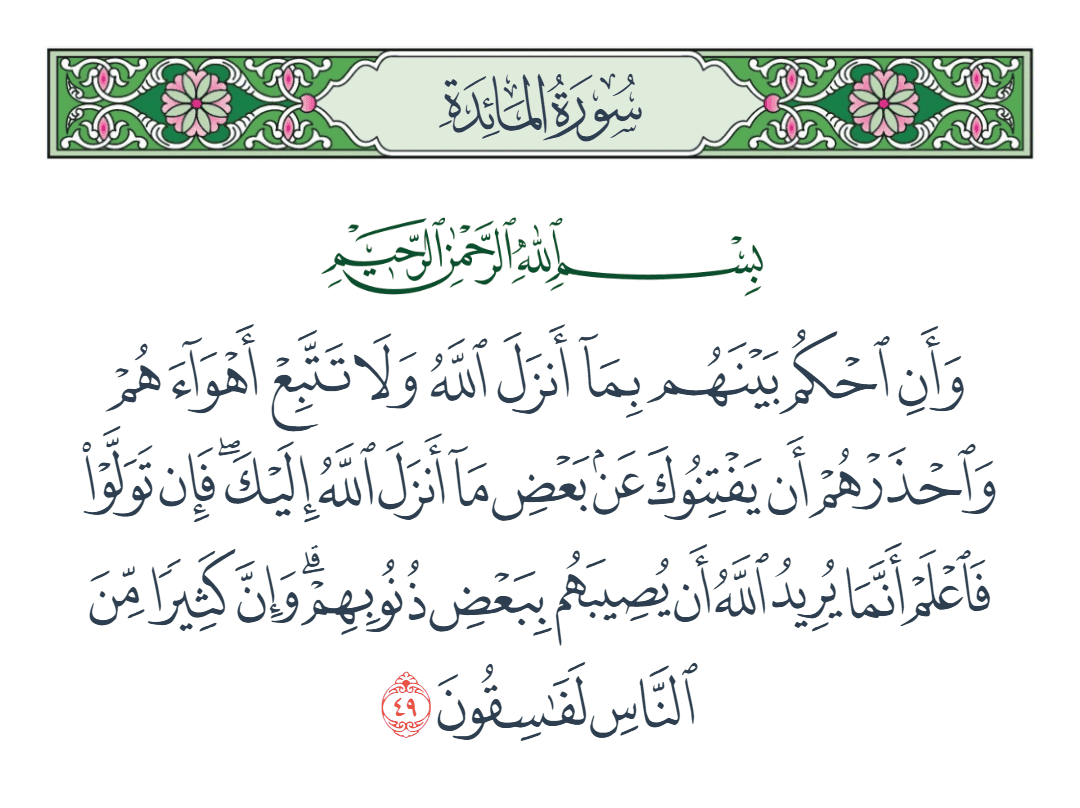 سُورَةُ الْمَائِدَةِ
بِسْمِ ٱللَّهِ ٱلرَّحْمَٰنِ ٱلرَّحِيمِ
وَأَنِ ٱحْكُم بَيْنَهُم بِمَآ أَنزَلَ ٱللَّهُ وَلَا تَتَّبِعْ أَهْوَآءَهُمْ
وَٱحْذَرْهُمْ أَن يَفْتِنُوكَ عَنۢ بَعْضِ مَآ أَنزَلَ ٱللَّهُ إِلَيْكَ ۖ فَإِن تَوَلَّوْا۟
فَٱعْلَمْ أَنَّمَا يُرِيدُ ٱللَّهُ أَن يُصِيبَهُم بِبَعْضِ ذُنُوبِهِمْ ۗ وَإِنَّ كَثِيرًا مِّنَ
ٱلنَّاسِ لَفَٰسِقُونَ ٤٩